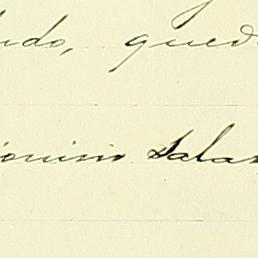 udo, qued
ionisio Salas